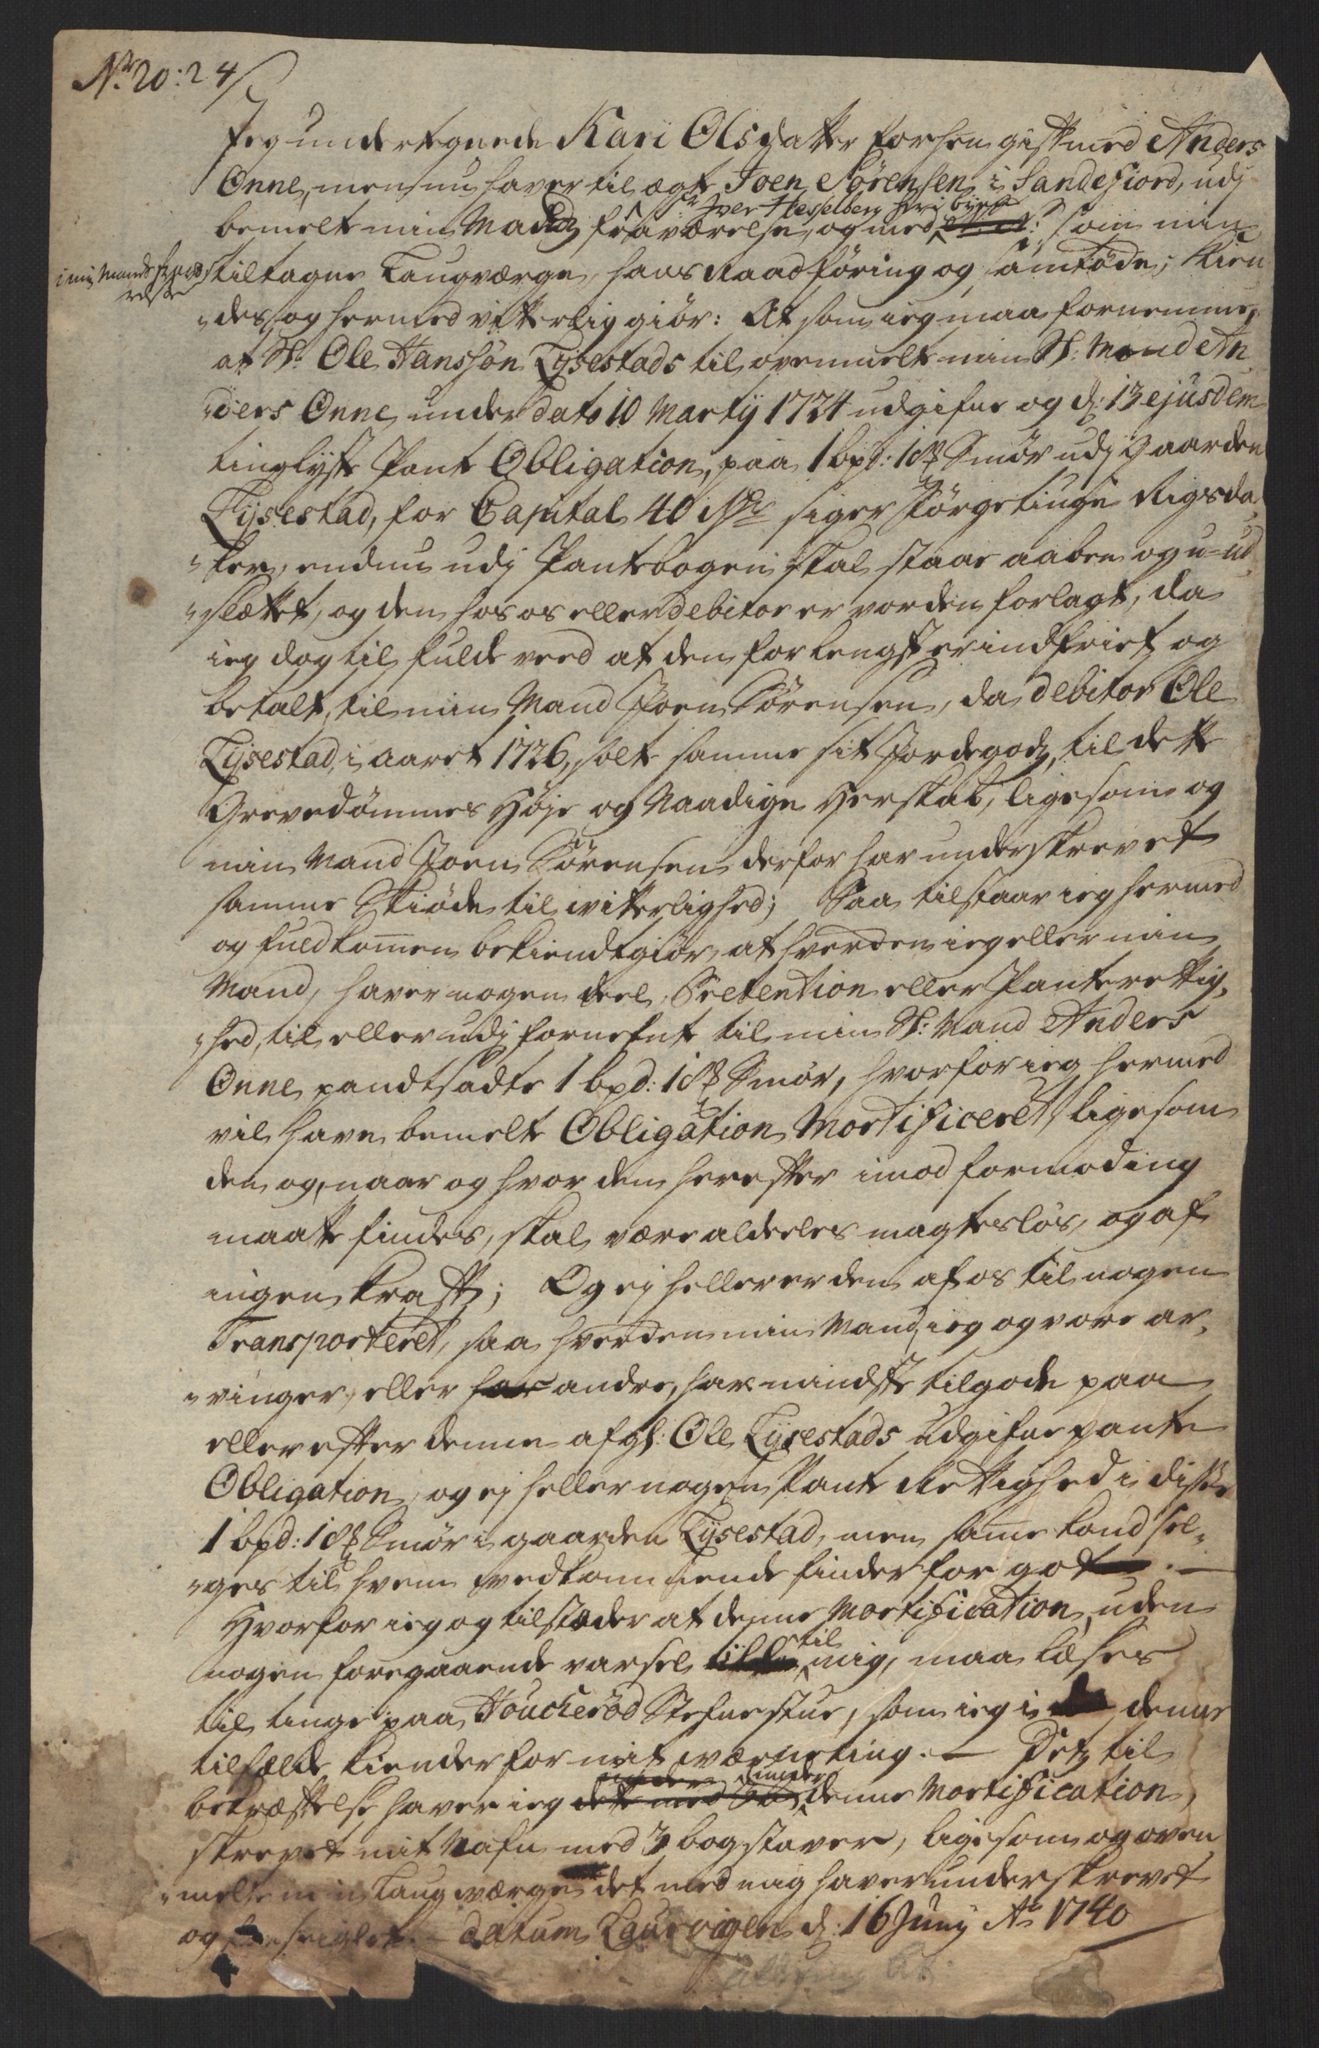 No. 20: 24/
Jeg undertegnede Kari Olsdatter forhen gift med Anders
Onne, men nu haver til ægte Joen Sørensen i Sandefiord, udj
bemelte min Mands fraværelse, og med Sr. Iver Hesselberg her i byen som min
i min Mands fraværelse
tiltagne Laugværge, hans Raadføring og samtøche; Kien-
des og hermed vitterlig giør: At som ieg maa fornemme,
at Sl. Ole Hanssøn Tysestads til ovenmelte min Sl: Mand An-
ders Onne, under dato 10 Martij 1724 udgifne og d: 13 ejusdem
tinglyste Pante Obligation, paa 1 bpd: 1 Smør udj Gaarden
Tysestad, for Capital 40 Rdr sigerFørgetiuge Rigsda-
ler, endnu udj Pantebogen skal staae aaben og u-ud-
slættet, og den hos os eller debitor er vorden forlagt, da
ieg dog til fulde veed at den for lengst er indfriet og
betalt, til min Mand Joen Sørensen, da debitor Ole
Tysestad, i aaret 1726, solte samme sit Jordegodz, til dette
Grevedømmes Høje og Naadige Herskab, ligesom og
min Mand Joen Sørensen derfor har underskrevet
samme Skiøde til vitterlighed; Saa tilstaar ieg hermed
og fuldkommen bekiendtgiør, at hverden ieg eller min
Mand, haver nogen deel, Prætention eller Panterettig-
hed, til eller udj fornefnte til min Sl: Mand Anders
Onne pandtsadte 1 bpd: 1 Smør, hvorfor ieg hermed
vil have bemelte Obligation Mortificeret, ligesom
den og, naar og hvor den herefter imod formoding
maatte findes, skal være aldeeles magtesløs, og af
ingen kraft; Og ej heller er den af os til nogen
Transporteret, saa hverden min Mand, ieg og vore ar-
vinger, eller andre, har mindste tilgode paa
eller efter denne afg: Ole Tysestads udgifne pante
Obligation, og ej heller nogen Pante Rettighed i disse
1 bpd: 1 Smør i gaarden Tysestad, men same kand sel-
ges til hvem vedkommende finder for got
Hvorfor ieg og tilstæder at denne Mortification, uden
nogen foregaaende varsel til mig, maa læses
til tinge paa Houcherød Stefnestue, som ieg i denne
tilfælde kiender for mit værneting. — Detz til
bekræftelse haver ieg under denne Mortification,
skrevet mit Nafn med 3 bogstaver, ligesom og oven-
melte min Laugværge det med mig haver underskrevet
og forseiglet. datum Laurvigen d: 16 Junij Ao 1740